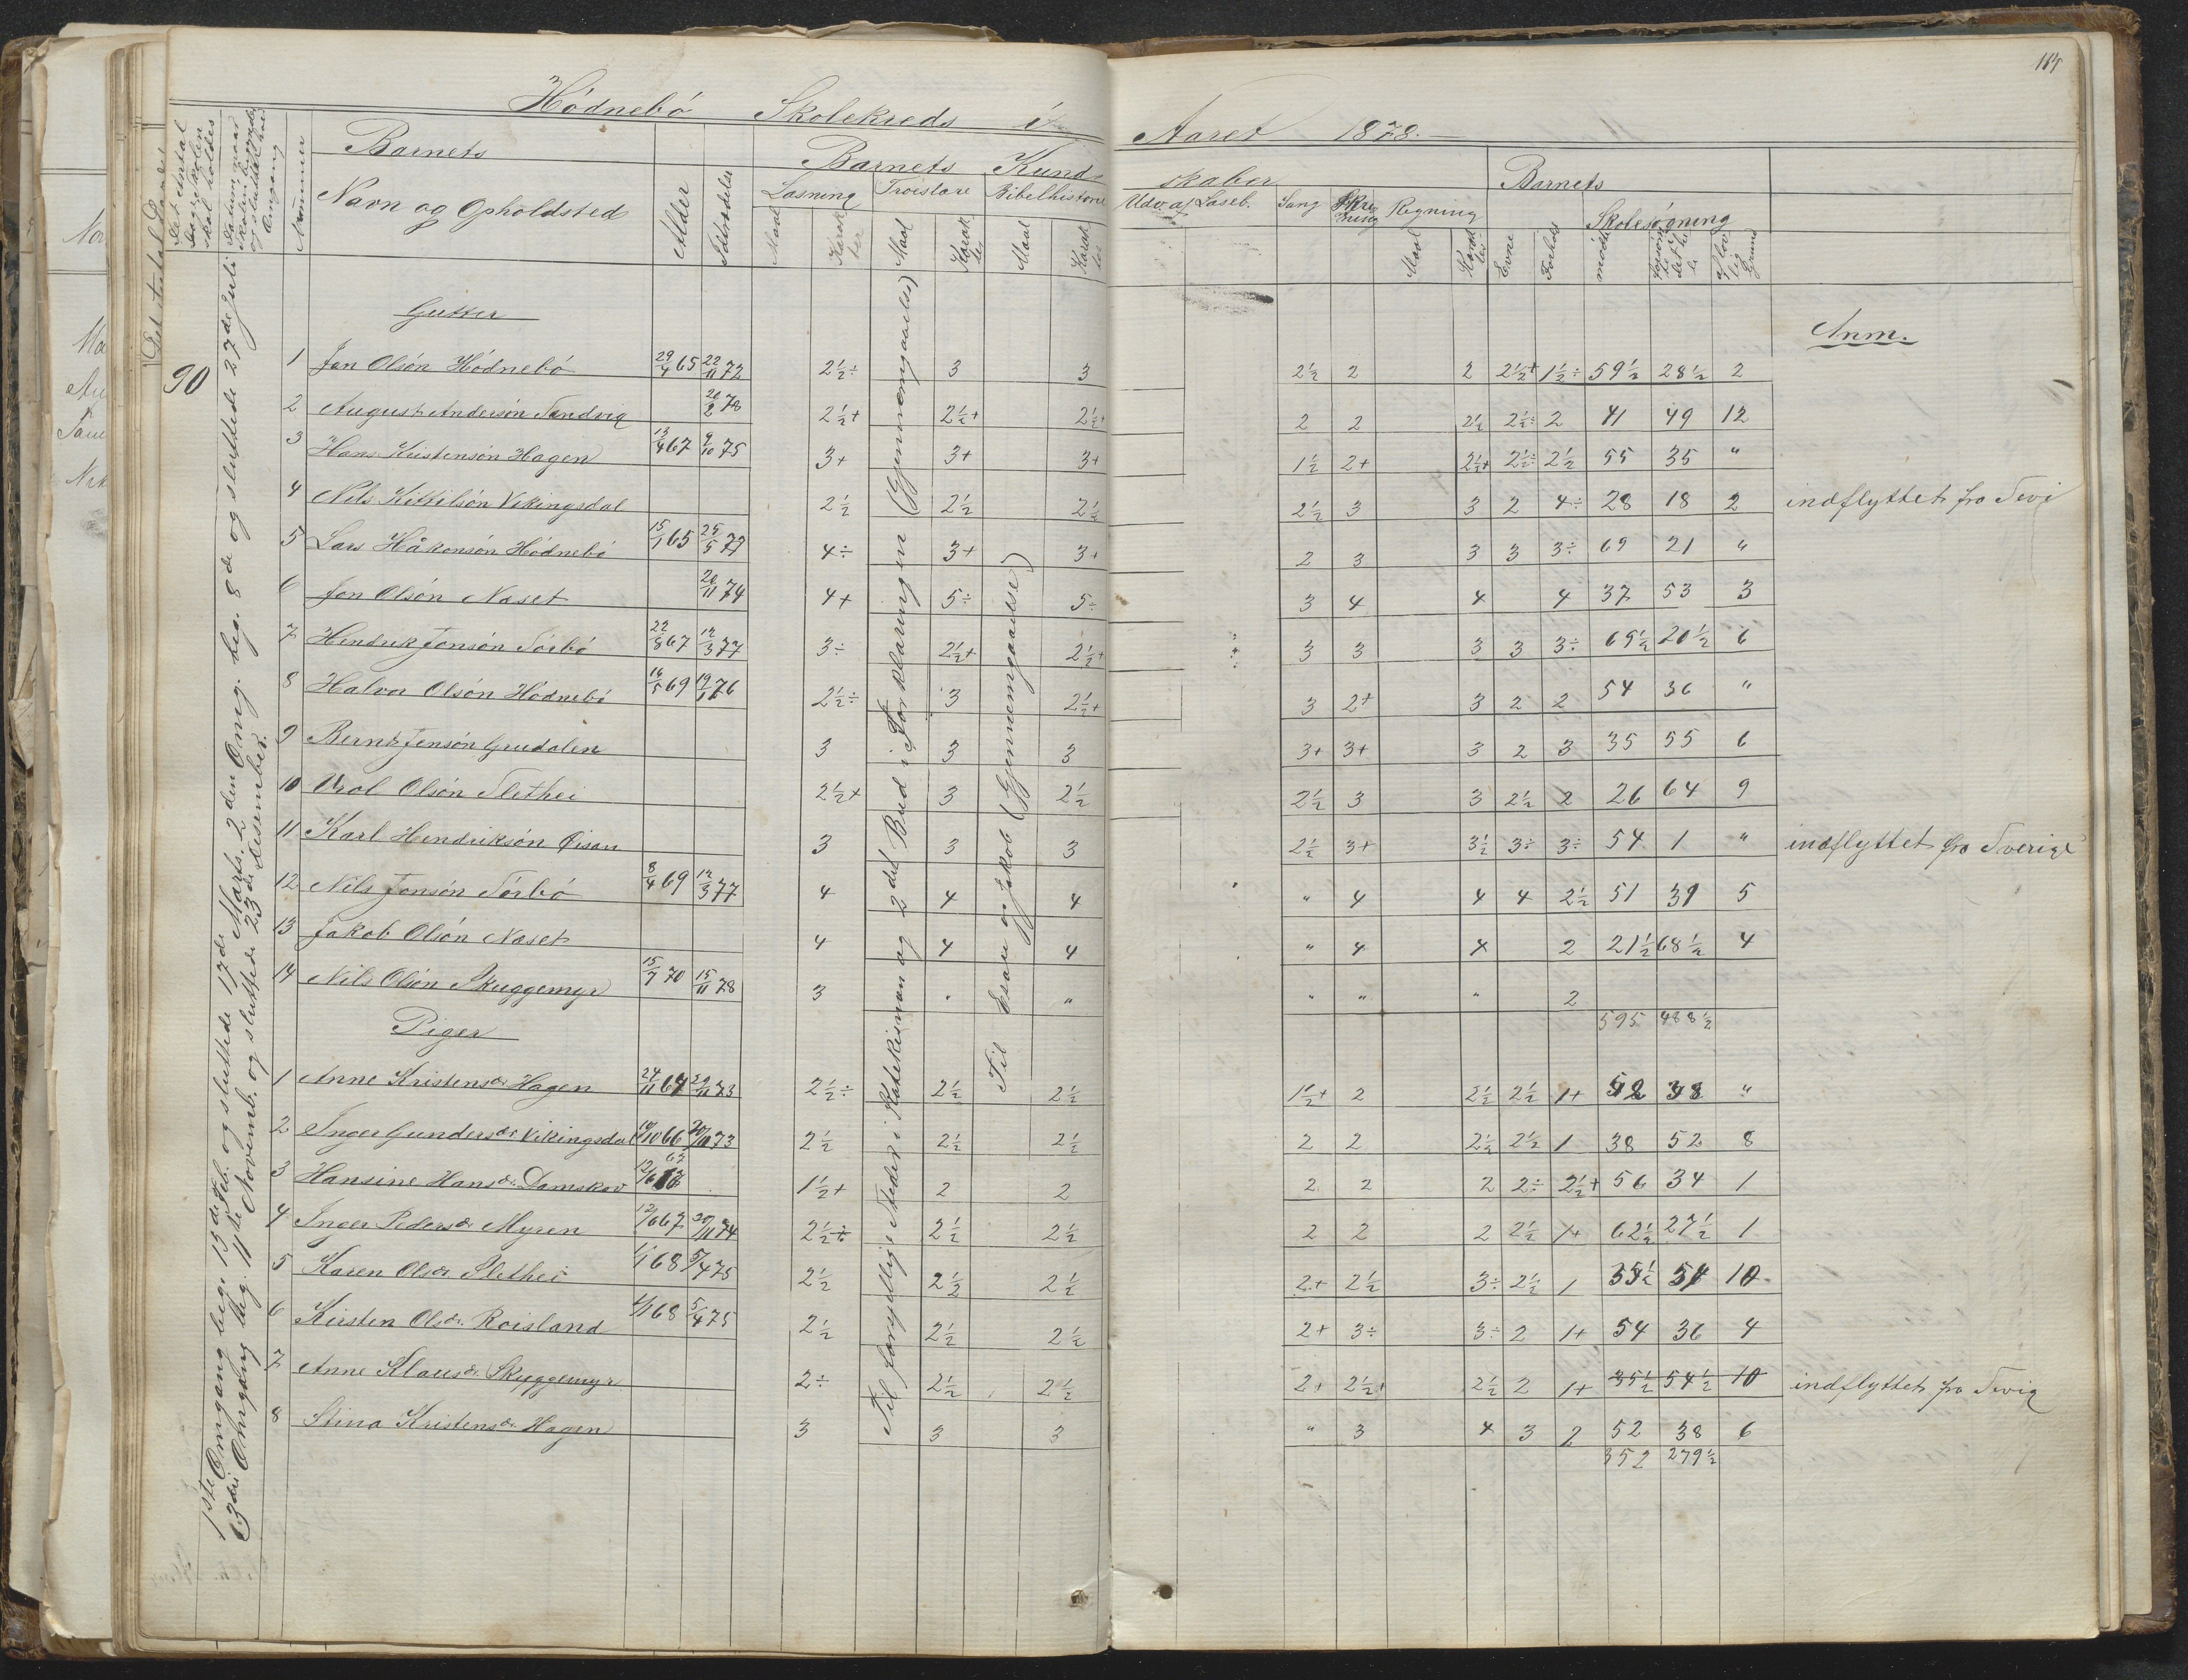 Hódnebó Skolekreds i Aaret 1878.
115
Det Antal Dage Skolen skal holdes
Datum, naar Skolen begyndte og sluttede hver Omgang
Nummer
Barnets
Navn og Opholdsted
Alder
Barnets Kundskaber
Læsning
Troeslære
Bibelhistorie
Maal
Karakter
Maal
Karakter
Maal
Karakter
Udv. af Læseb.
Sang
Skrivning
Regning
Maal
Karakter
Barnets
Evne
Forhold
Skolesøgning
mødte
forsømte i det hele
af lovlig Grund
Anm.
90
1ste Omgang beg. 15de Feb. og sluttede 17de Marts. 2den Omg. beg. 8de og sluttede 27de Juli
3die Omgang beg. 11te Novemb. og sluttede 23de Desember.
Til forskjellige Steder i Katekismen og 2det Bud i Forklaringen (Gjennemgaaelse)
Til Esau og Jakob (Gjennemgaaelse)
Gutter
1 Jon Olsón Hódnebó 29/4 65 22/11 72 2½÷ 3 3 2½ 2 2 2½+ 1½÷ 59½ 28½ 2
2 August Andersón Sandvig 20/2 78 2½+ 2½+ 2½+ 2 2 2½ 2½÷ 2 41 49 12
3 Hans Kristensón Hagen 13/4 67 9/10 75 3+ 3+ 3+ 1½ 2+ 2½+ 2½÷ 2½ 55 35 "
4 Nils Kittilsón Vikingsdal 2½ 2½ 2½ 2½ 3 3 2 4÷ 28 18 2 indflyttet fra
5 Lars Håkonsón Hódnebó 15/1 65 25/5 77 4÷ 3+ 3+ 2 3 3 3 3÷ 69 21 "
6 Jon Olsón Næset 20/11 74 4+ 5÷ 5÷ 3 4 4 4 37 53 3
7 Hendrik Jonsón Sórbó 22/8 67 12/3 77 3÷ 2½+ 2½+ 3 3 3 3 3÷ 69½ 20½ 6
8 Halvor Olsón Hódnebó 16/5 69 76 2½÷ 3 2½+ 3 2+ 3 2 2 54 36 "
9 Bernt Jensón Grudalen 3 3 3 3+ 3+ 3 2 3 35 55 6
10 Olsón Slethei 2½+ 3 2½ 2½ 3 3 2½ 2 26 64 9
11 Karl Hendriksón Øisan 3 3 3 2½ 3+ 3½ 3÷ 3÷ 54 1 " indflyttet fra Sverige
12 Nils Jonsón Sórbó 8/4 69 12/3 77 4 4 4 " 4 4 4 2½ 51 39 5
13 Jakob Olsón Næset 4 4 4 " 4 4 2 21½ 68½ 4
14 Nils Olsón Skuggemyr 15/7 70 15/11 78 3 " " " " " 2
595 488½
Piger
1 Anne Kristensdr Hagen 24/11 64 73 2½÷ 2½ 2½ 1½+ 2 2½ 2½ 1+ 52 38 "
2 Inger Gundersdr Vikingsdal 10 66 20/11 73 2½ 2½ 2½ 2 2 2½ 2½ 1 38 52 8
3 Hansine Hansdr. Damskov 12/6 67 1½+ 2 2 2 2 2 2÷ 2½+ 56 34 1
4 Inger Pedersdr Myren 12/6 67 20/11 74 2½ 2½ 2½ 2 2 2 2½ 1+ 62½ 27½ 1
5 Karen Olsdr Slethei 1/1 68 5/4 75 2½ 2½ 2½ 2+ 2½ 3÷ 2½ 1 35½ 54 10
6 Kirsten Olsdr. Roisland 68 5/4 75 2½ 2½ 2½ 2+ 3÷ 3÷ 2 1+ 54 36 4
7 Anne Klausdr. Skuggemyr 2÷ 2½ 2½ 2+ 2½+ 2½ 2 1+ 35½ 54½ 10 indflyttet fra
8 Stina Kristensdr. Hagen 3 3 3 " 3 4 3 2 52 38 6
352 279½